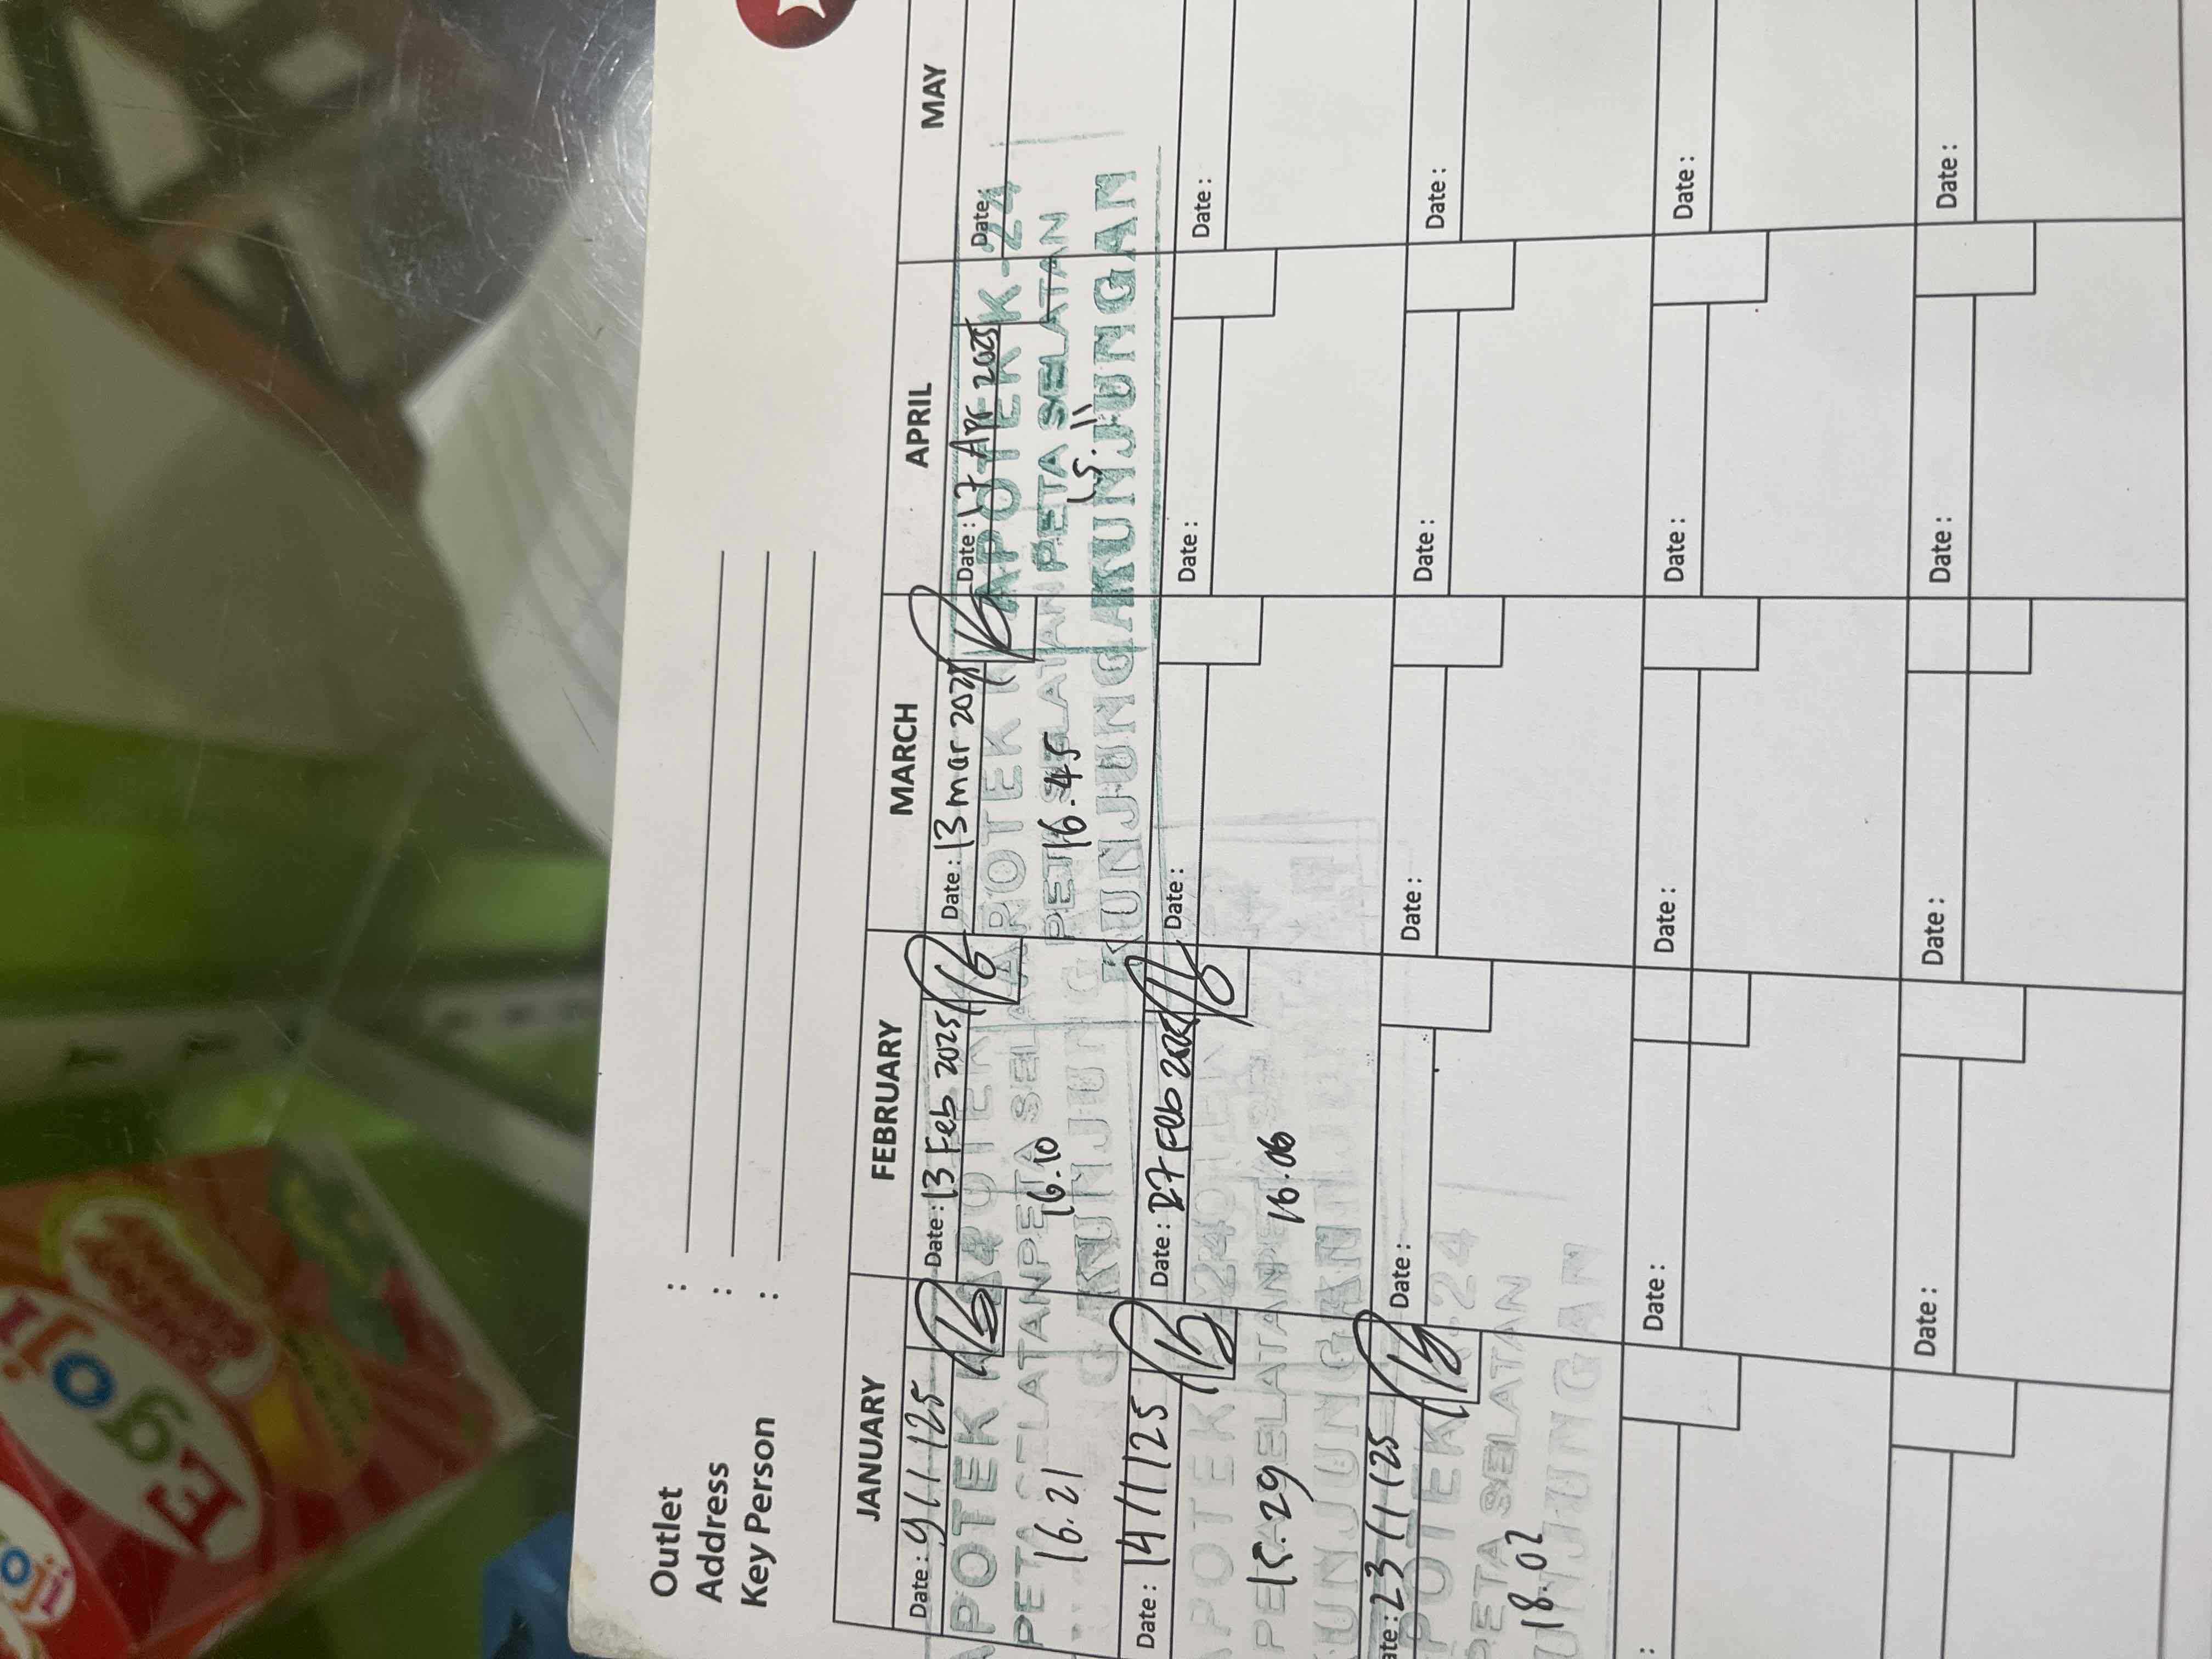 Outlet :
Address :
Key Person :
JANUARY FEBRUARY MARCH APRIL MAY
Date : 9/1/25 Date : 13 Feb 2025 Date : 13 mar 2025 Date : 17 Apr 2025 Date
APOTEK K-24
PETA SELATAN
KUNJUNGAN
16.21 16.10 16.45 15.11
Date : 14/1/25 Date : 27 Feb 2025 Date : Date : Date :
APOTEK K-24
PETA SELATAN
KUNJUNGAN
15.29 16.06
ate : 23/1/25 Date : Date : Date : Date :
POTEK K-24
PETA SELATAN
UNJUNGAN
18.02
: Date : Date : Date : Date :
Date : Date : Date : Date :
EgoJi